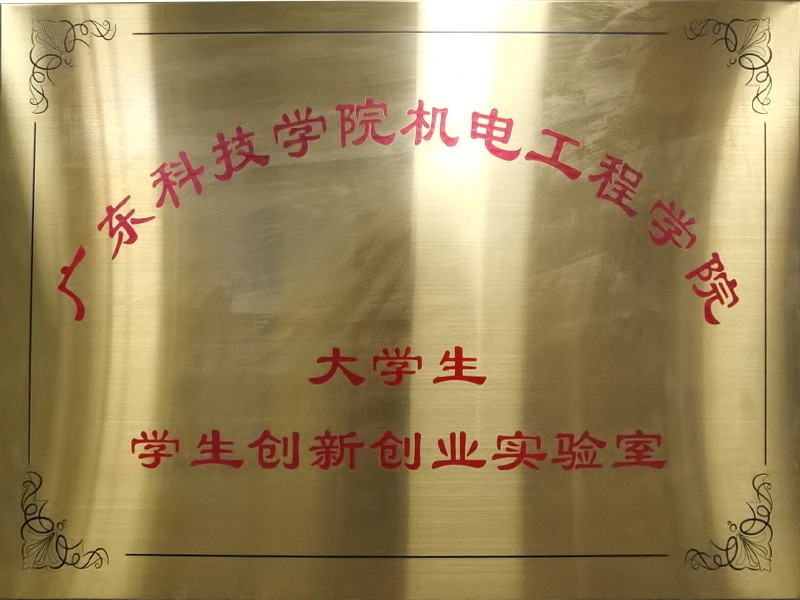 广东科技学院机电工程学院
大学生
学生创新创业实验室